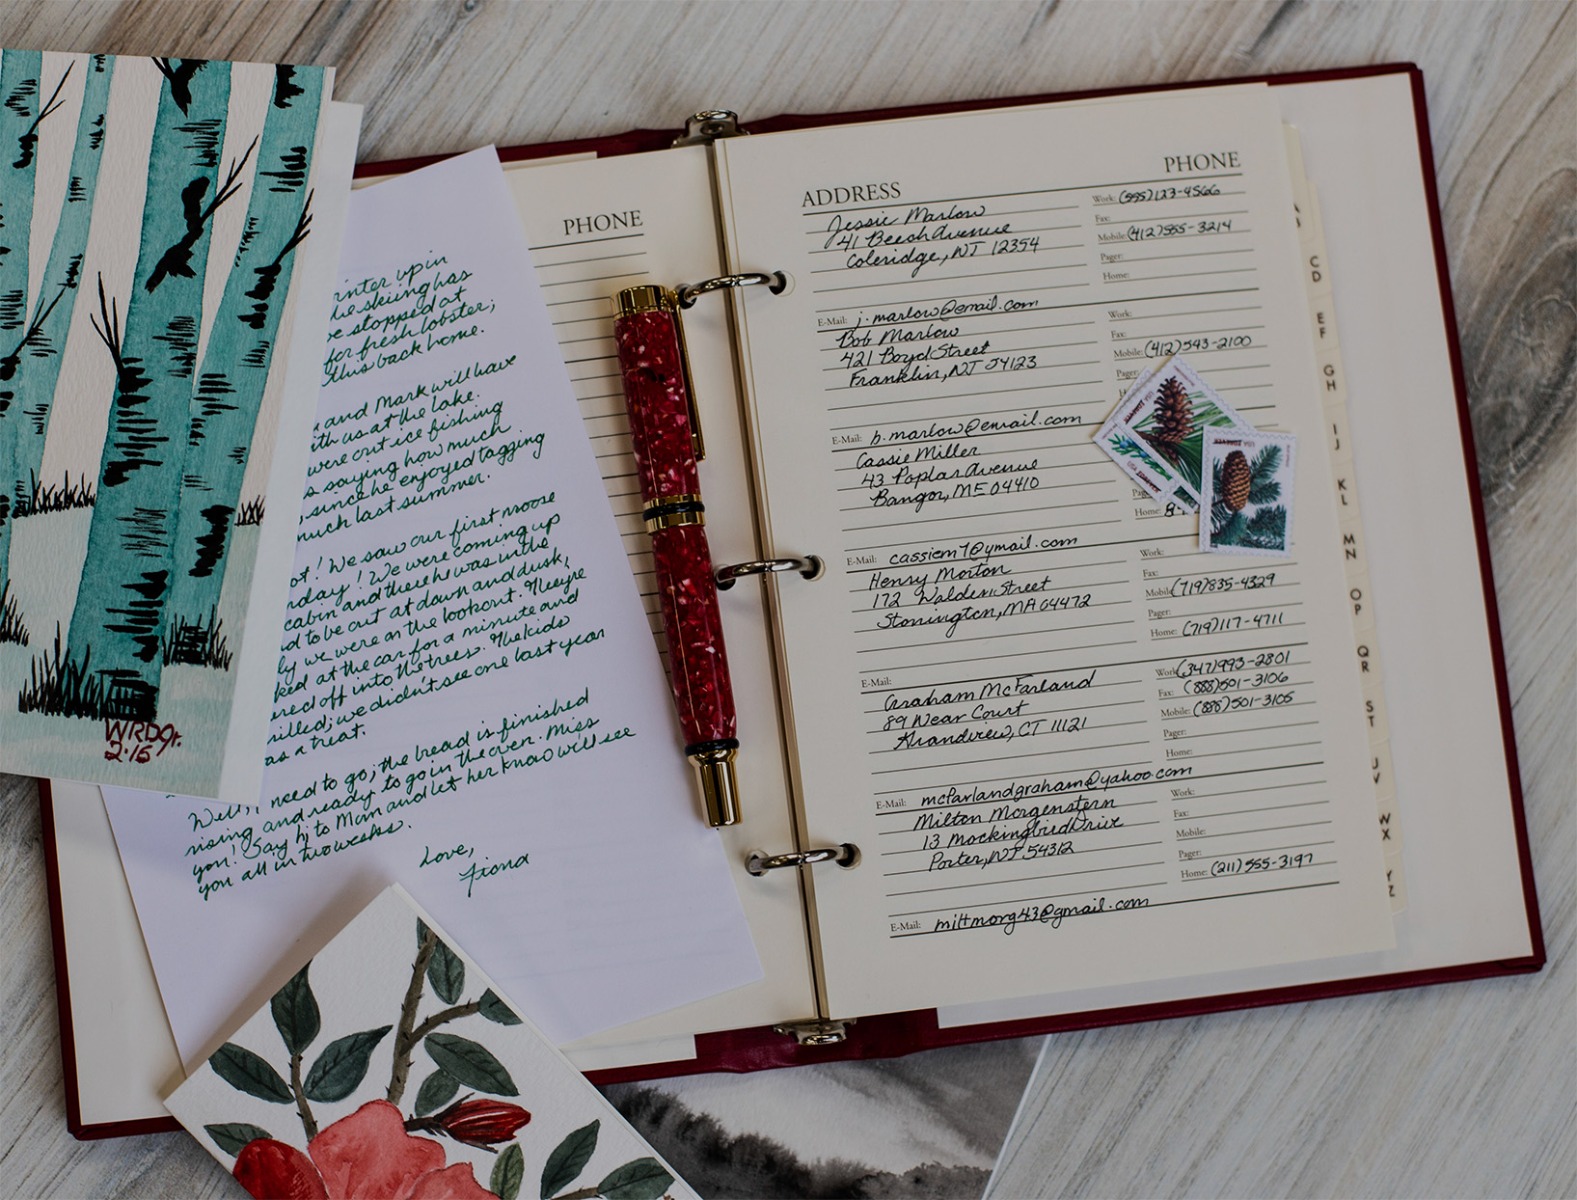 WRDJr.
2.16
winter up in
the skiing has
we stopped at
for fresh lobster;
this back home.
and Mark will have
with us at the lake.
were out ice fishing
saying how much
, since he enjoyed tagging
much last summer.
! We saw our first moose
! We were coming up
cabin and there he was in the
to be out at dawn and dusk,
we were on the lookout. They're
at the car for a minute and
off into the trees. The kids
; we didn't see one last year
as a treat.
Well, I need to go; the bread is finished
rising and ready to go in the oven. Miss
you! Say hi to Mom and let her know will see
you all in two weeks.
Love,
Fiona
PHONE
ADDRESS
PHONE
Jessie Marlow
41 Beech Avenue
Coleridge, NT 12354
Work: (555)123-4566
Fax:
Mobile: (412)555-3214
Pager:
Home:
E-Mail: j.marlow@email.com
Bob Marlow
421 Boyd Street
Franklin, NT 54123
Work:
Fax:
Mobile: (412)543-2100
Pager:
E-Mail: b.marlow@email.com
Cassie Miller
43 Poplar Avenue
Bangor, ME 04410
Home:
E-Mail: cassiem7@ymail.com
Henry Morton
172 Walden Street
Stonington, MA 04472
Work:
Fax:
Mobile: (719)835-4329
Pager:
Home: (719)117-4711
E-Mail:
Graham McFarland
89 Near Court
CT 11121
Work: (347)993-2801
Fax: (888)501-3106
Mobile: (888)501-3105
Pager:
Home:
E-Mail: mcfarlandgraham@yahoo.com
Milton Morgenstern
13 Mockingbird Drive
Porter, NT 54312
Work:
Fax:
Mobile:
Pager:
Home: (211)555-3197
E-Mail: miltmorg43@gmail.com
CD
EF
GH
IJ
KL
MN
OP
QR
ST
UV
WX
YZ